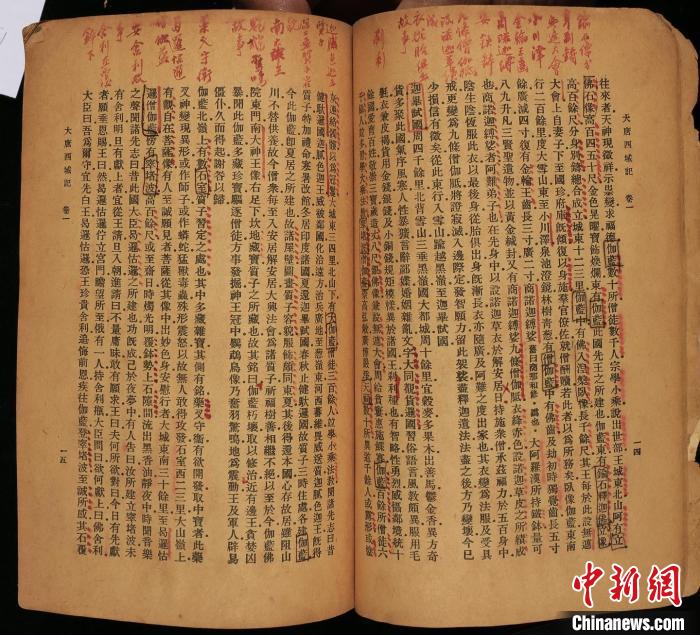 往來者天神現徵祥示祟變求福德伽藍數十所僧徒數千人宗學小乘說出世部王城東北山阿有立
佛石像高百四五十尺金色晃曜寶飾煥爛東有伽藍此國先王之所建也伽藍東有鍮石釋迦佛立像
高百餘尺分身別鑄總合成立城東十二三里伽藍中有佛入涅槃臥像長千餘尺其王每於此設無遮
大會上自妻子下至國珍府庫既傾復以身施羣官僚佐就僧酬贖若此者以為所務矣臥像伽藍東南
行二百餘里度大雪山東至小川澤泉池澄鏡林樹青葱有僧伽藍中有佛齒及劫初時獨覺齒長五寸
餘廣減四寸復有金輪王齒長三寸廣二寸商諾迦縛娑舊曰商那和修訛也大阿羅漢所持鐵鉢量可
八九升凡三賢聖遺物並以黃金緘封又有商諾迦縛娑九條僧伽胝衣絳赤色設諾迦草皮之所績成
也商諾迦縛娑者阿難弟子也在先身中以設諾迦草衣於解安居日持施衆僧承茲福力於五百身中
陰生陰恆服此衣以最後身從胎俱出身既漸長衣亦隨廣及阿難之度出家也其衣變為法服及受具
戒更變為九條僧伽胝將證寂滅入邊際定發智願力留此袈裟盡釋迦遺法法盡之後方乃變壞今已
少損信有徵矣從此東行入雪山踰越黑嶺至迦畢試國
迦畢試國周四千餘里北背雪山三垂黑嶺國大都城周十餘里宜穀麥多果木出善馬鬱金香異方奇
貨多聚此國氣序風寒人性暴獷言辭鄙媟婚姻雜亂文字大同覩貨邏國習俗語言風教頗異服用毛
氎衣兼皮褐貨用金錢銀錢及小銅錢規矩模樣異於諸國王窣利種也有智略性勇烈威懾鄰境統十
餘國愛育百姓敬崇三寶歲造丈八尺銀佛像兼設無遮大會周給貧窶惠施鰥寡伽藍百餘所僧徒六
天祠數十所異道千餘人或露形或塗
大唐西域記 卷一
一四
灰連絡髑髏以為冠鬘大城東三四里北山下有大伽藍僧徒三百餘人並學小乘法教聞諸先志曰昔
健馱邏國迦膩色迦王威被鄰國化洽遠方治兵廣地至葱嶺東河西蕃維畏威送質迦膩色迦王既得
質子特加禮命寒暑改館冬居印度諸國夏還迦畢試國春秋止健馱邏國故質子三時住處各建伽藍
今此伽藍即夏居之所建也故諸屋壁圖畫質子容貌服飾頗同東夏其後得還本國心存故居雖阻山
川不替供養故今僧衆每至入安居解安居大興法會為諸質子祈福樹善相繼不絕以至於今伽藍佛
院東門南大神王像右足下坎地藏寶質子之所藏也故其銘曰伽藍朽壞取以修治近有邊王貪婪凶
暴聞此伽藍多藏珍寶驅逐僧徒方事發掘神王冠中鸚鵡鳥像乃奮羽驚鳴地為震動王及軍人辟易
僵仆久而得起謝咎以歸
伽藍北嶺上有數石室質子習定之處也其中多藏雜寶其側有銘藥叉守衛有欲開發取中寶者此藥
叉神變現異形或作師子或作蟒蛇猛獸毒蟲殊形震怒以故無人敢得攻發石室西二三里大山嶺上
有觀自在菩薩像有人至誠願見者菩薩從其像中出妙色身安慰行者大城東南三十餘里至曷邏怙
邏僧伽藍傍有窣堵波高百餘尺或至齋日時燭光明覆鉢勢上石隙間流出黑香油靜夜中時聞音樂
之聲聞諸先志曰昔此國大臣曷邏怙邏之所建也功既成已於夜夢中有人告曰汝所建立窣堵波未
有舍利明旦有獻上者宜從王請旦入朝進請曰不量庸昧敢有願求王曰夫何所欲對曰今日有先獻
者願垂恩賜王曰然曷邏怙邏佇立宮門瞻望所至俄有一人持舍利瓶大臣問曰欲何獻上曰佛舍利
大臣曰吾為爾守宜先白王曷邏怙邏恐王珍貴舍利追悔前恩疾往伽藍登窣堵波至誠所感其石覆
大唐西域記 卷一
一五
中新网
Chinanews.com